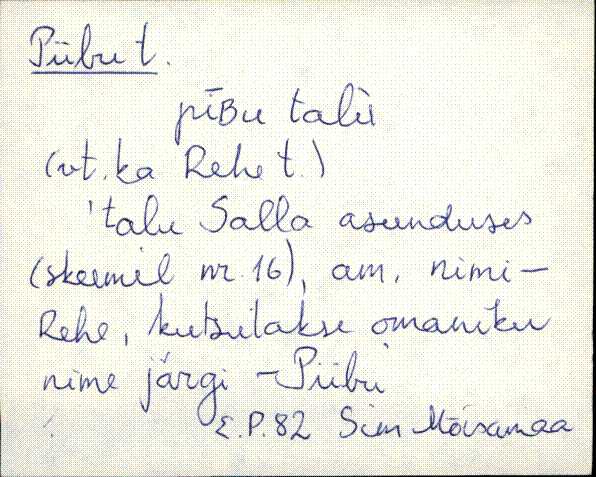 Piibu t.
pīBu talù
(vt. ka Rehe t.)
'talu Salla asunduses
(skeemil nr. 16), am. nimi-
Rehe, kutsutakse omaniku
nime järgi - Piibu'
E.P. 82 Sim Mõisamaa